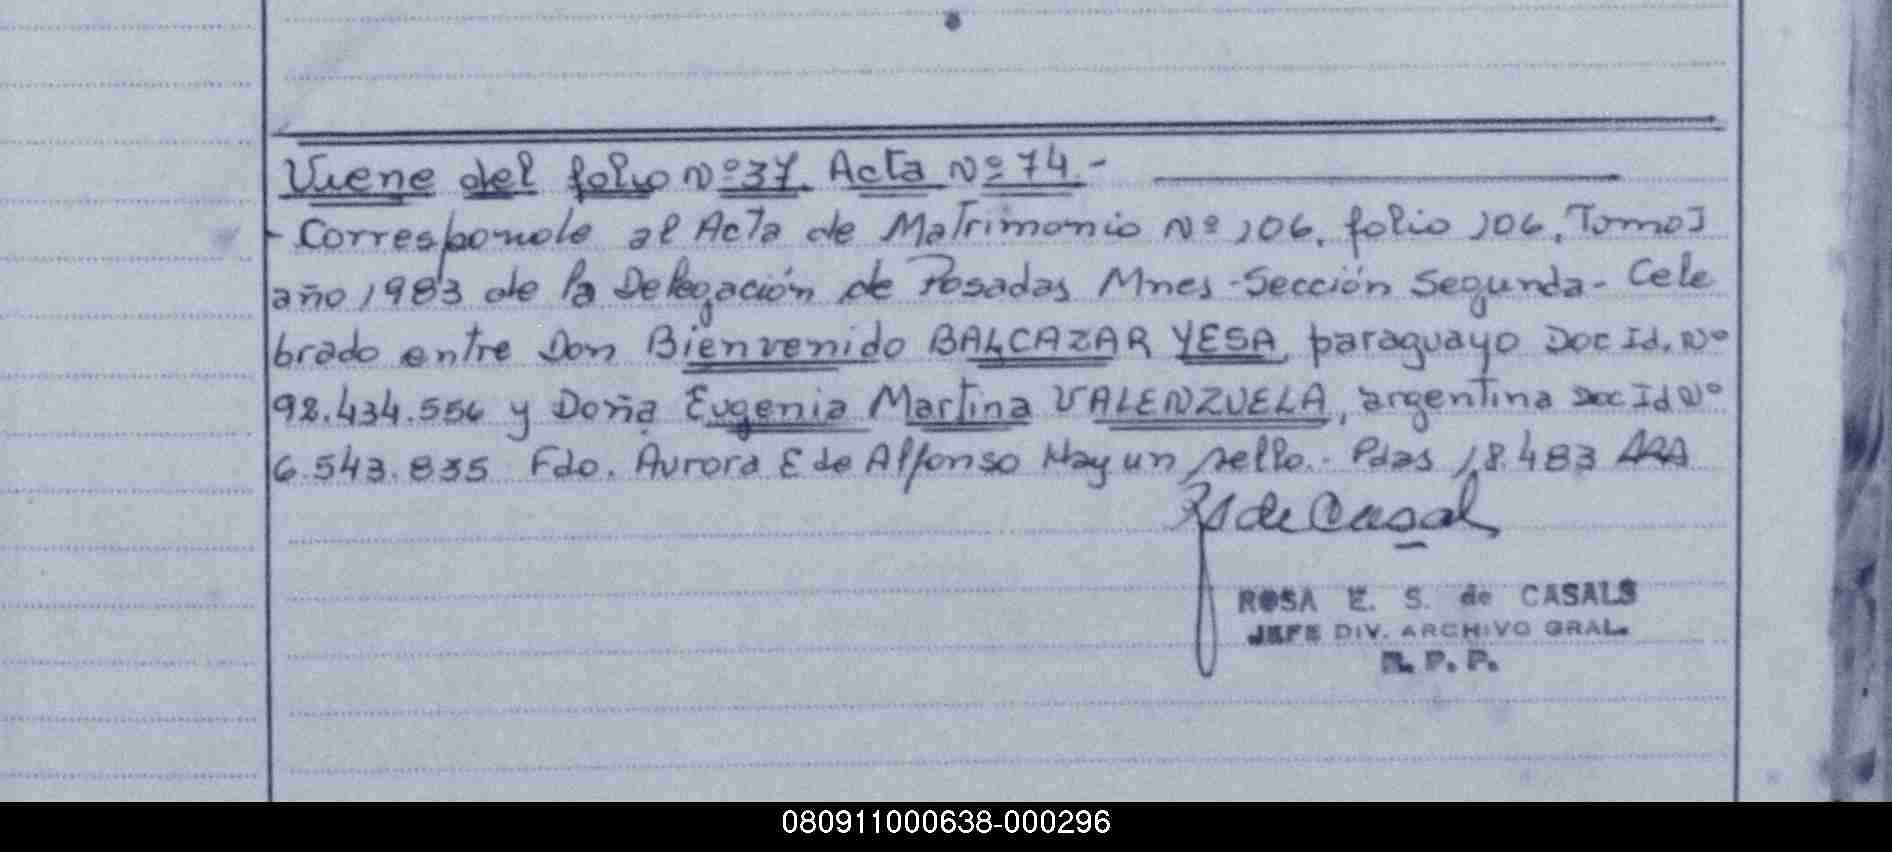 Viene del folio Nº 37. Acta Nº 74.-
- Corresponde al Acta de Matrimonio Nº 106, folio 106, Tomo I
año 1983 de la Delegación de Posadas Mnes - Sección Segunda - Cele
brado entre Don Bienvenido BALCAZAR YESA, paraguayo Doc Id. Nº
92.434.556 y Doña Eugenia Martina VALENZUELA, argentina Doc Id Nº
6.543.835 Fdo. Aurora E de Alfonso Hay un sello.- Pdas 18.4 83
RS de Casal
ROSA E. S. de CASALS
JEFE DIV. ARCHIVO GRAL.
R. P. P.
080911000638-000296